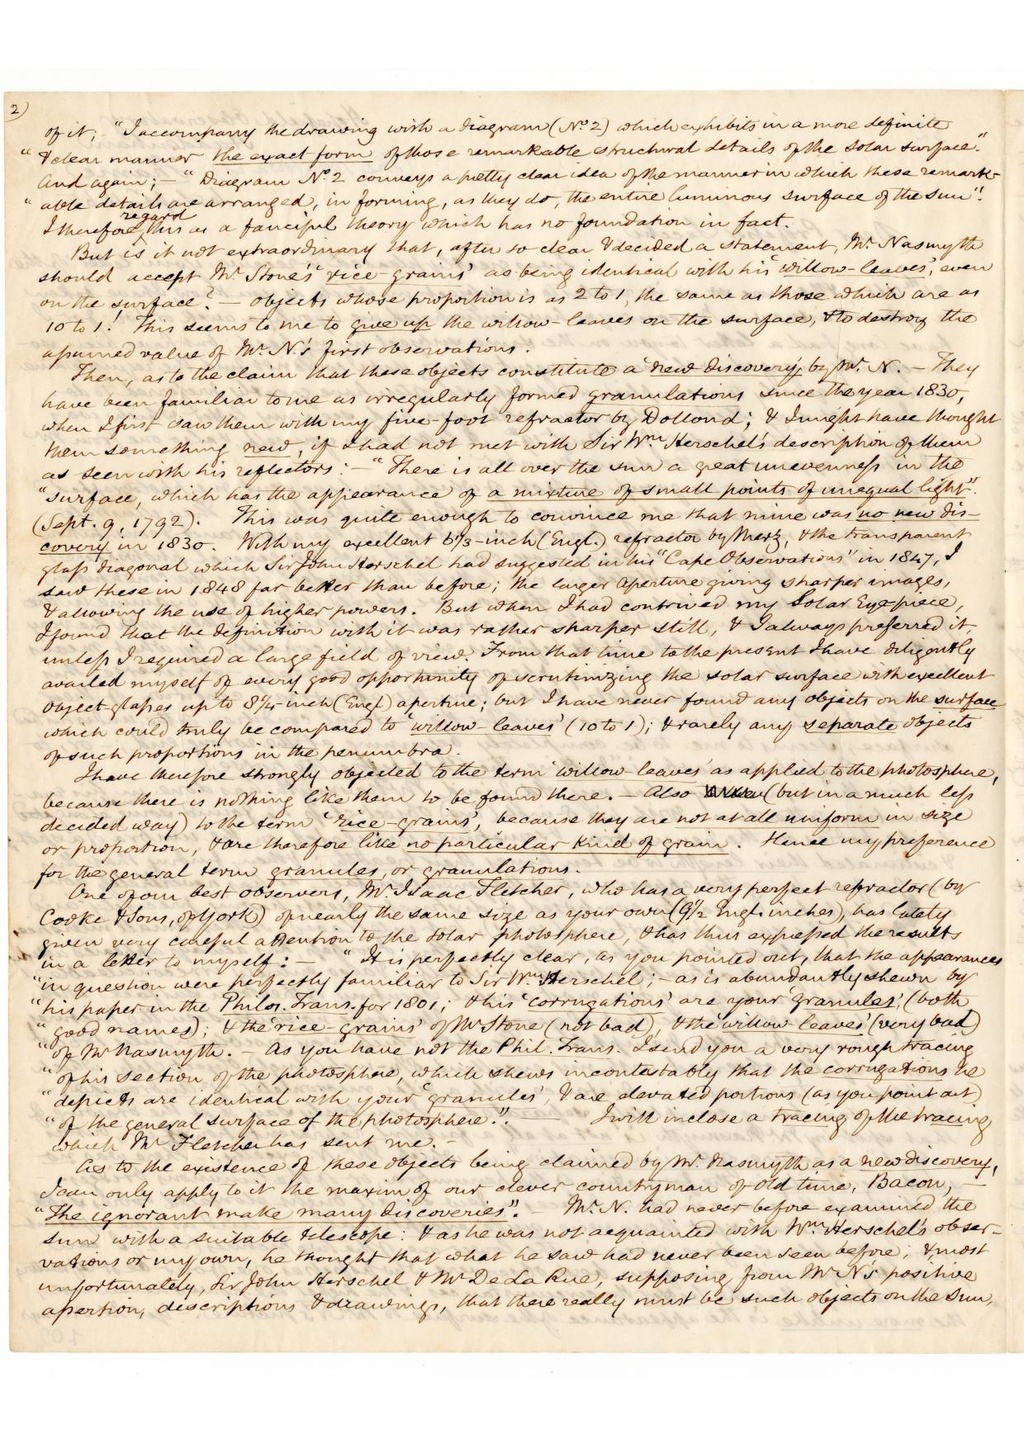 2)
of it, "I accompany the drawing with a diagram (No. 2) which exhibits in a more definite
"& clear manner the exact form of those remarkable structural details of the solar surface."
And again; — "Diagram No. 2 conveys a pretty clear idea of the manner in which these remark-
"able details are arranged, in forming, as they do, the entire luminous surface of the Sun"!
I therefore regard this as a fanciful theory which has no foundation in fact.
But is it not extraordinary that, after so clear & decided a statement, Mr. Nasmyth
should accept Mr. Stone's 'rice-grains' as being identical with his 'willow-leaves', even
on the surface? — objects whose proportion is as 2 to 1, the same as those which are as
10 to 1! This seems to me to give up the willow-leaves on the surface, & to destroy the
assumed value of Mr. N.'s first observations.
Then, as to the claim that these objects constitute a 'new discovery' by Mr. N. — They
have been familiar to me as irregularly formed granulations since the year 1830,
when I first saw them with my five-foot refractor by Dollond; & I might have thought
them something new, if I had not met with Sir Wm. Herschel's description of them
as seen with his reflectors: — "There is all over the sun a great unevenness in the
"surface, which has the appearance of a mixture of small points of unequal light".
(Sept. 9, 1792). This was quite enough to convince me that mine was no new dis-
covery in 1830. With my excellent 6⅓-inch (Engl.) refractor by Merz, & the transparent
glass diagonal which Sir John Herschel had suggested in his "Cape Observations" in 1847, I
saw these in 1848 far better than before; the larger aperture giving sharper images,
& allowing the use of higher powers. But when I had contrived my Solar Eyepiece,
I found that the definition with it was rather sharper still, & I always preferred it
unless I required a large field of view. From that time to the present I have diligently
availed myself of every good opportunity of scrutinizing the solar surface with excellent
object-glasses up to 8¼-inch (Engl.) aperture; but I have never found any objects on the surface
which could truly be compared to 'willow-leaves' (10 to 1); & rarely any separate objects
of such proportions in the penumbra.
I have therefore strongly objected to the term 'willow leaves' as applied to the photosphere,
because there is nothing like them to be found there. — Also (but in a much less
decided way) to the term 'rice-grains', because they are not at all uniform in size
or proportion, & are therefore like no particular kind of grain. Hence my preference
for the general term granules, or granulations.
One of our best observers, Mr. Isaac Fletcher, who has a very perfect refractor (by
Cooke & Sons, of York) of nearly the same size as your own (9½ Engl. inches), has lately
given very careful attention to the solar photosphere, & has thus expressed the results
in a letter to myself: — "It is perfectly clear, as you pointed out, that the appearances
"in question were perfectly familiar to Sir Wm. Herschel; — as is abundantly shewn by
"his paper in the Philos. Trans. for 1801; & his 'corrugations' are your 'granules', (both
"good names); & the 'rice-grains' of Mr. Stone (not bad), & the 'willow-leaves' (very bad)
"of Mr. Nasmyth. — As you have not the Phil. Trans. I send you a very rough tracing
"of his section of the photosphere, which shews incontestably that the corrugations he
"depicts are identical with your 'granules', & are elevated portions (as you point out)
"of the general surface of the photosphere". — I will inclose a tracing of the tracing
which Mr. Fletcher has sent me. —
As to the existence of these objects being claimed by Mr. Nasmyth as a new discovery,
I can only apply to it the maxim of our clever countryman of old time, Bacon, —
"The ignorant make many discoveries". — Mr. N. had never before examined the
sun with a suitable telescope: & as he was not acquainted with Wm. Herschel's obser-
vations or my own, he thought that what he saw had never been seen before; & most
unfortunately, Sir John Herschel & Mr. De La Rue, supposing from Mr. N's positive
assertion, descriptions & drawings, that there really must be such objects on the Sun,